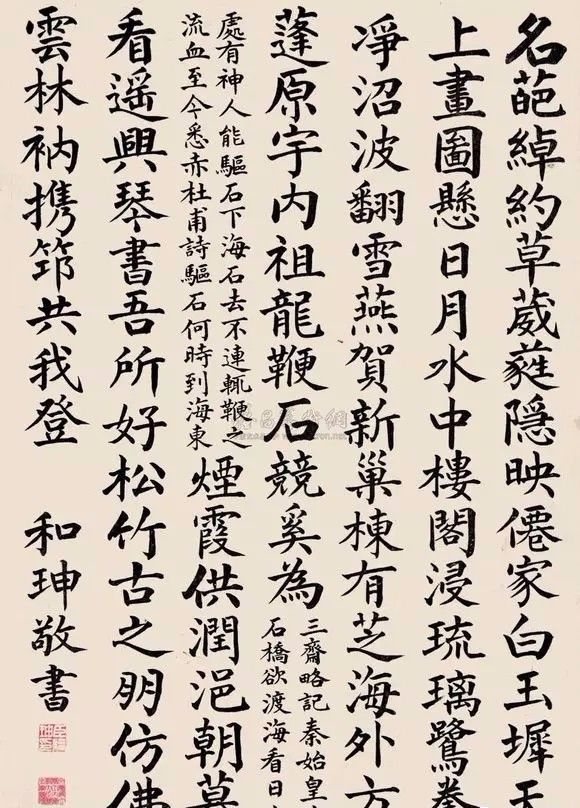 名葩綽約草葳蕤隱映僊家白玉墀
上畫圖懸日月水中樓閣浸琉璃鷺
凈沼波翻雪燕賀新巢棟有芝海外方
蓬原宇内祖龍鞭石競奚為
三齋略記秦始皇
石橋欲渡海看日
處有神人能驅石下海石去不速輒鞭之
流血至今悉赤杜甫詩驅石何時到海東
煙霞供潤浥朝莫
看遥興琴書吾所好松竹古之朋仿佛
雲林衲携筇共我登
和珅敬書